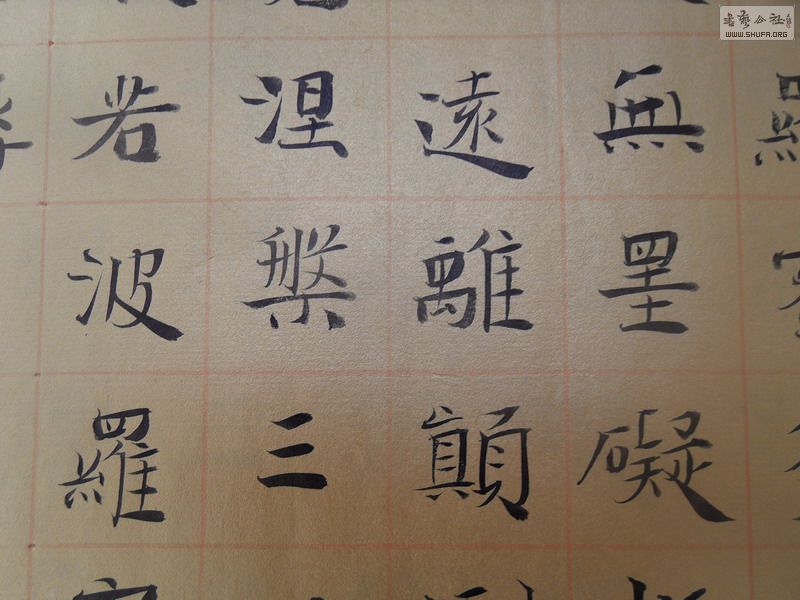 無罣礙
遠離顛
涅槃三
若波羅
書藝公社
WWW.SHUFA.ORG